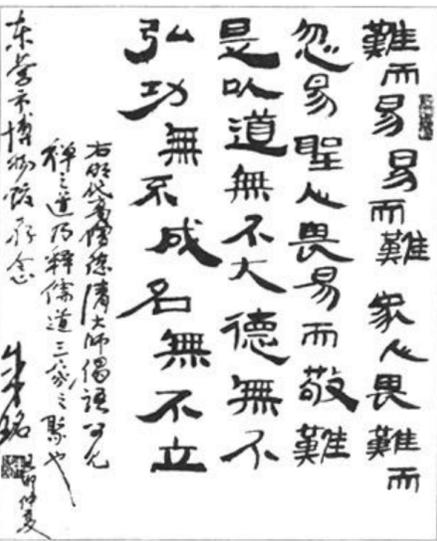 難而易易而難眾人畏難而
忽易聖人畏易而敬難
是以道無不大德無不
弘功無不成名無不立
右明代高僧德清大师偈语
禅之道乃释儒道三家之聚也
东营市博物馆存念
铭
卯仲夏